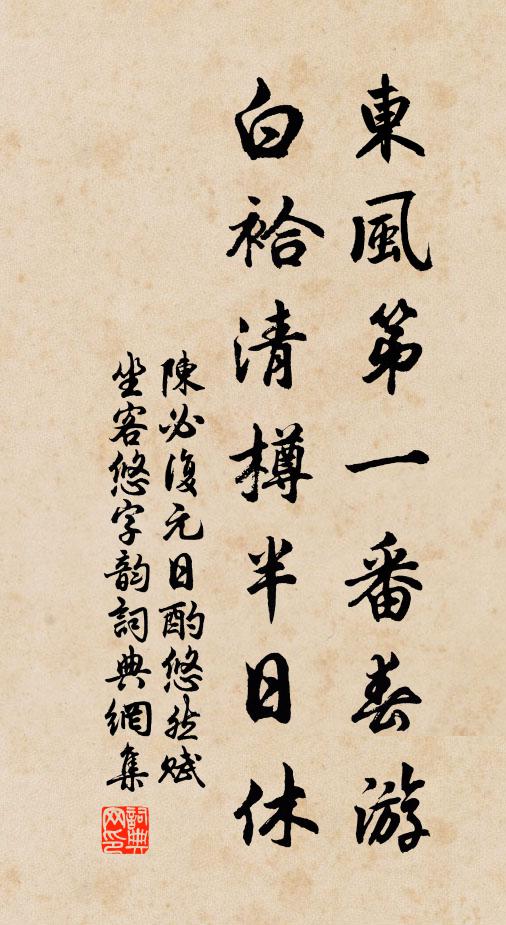 東風第一番春游
白袷清樽半日休
陳必復元日酌悠然賦
坐客悠字韵詞典網集
詞典网印